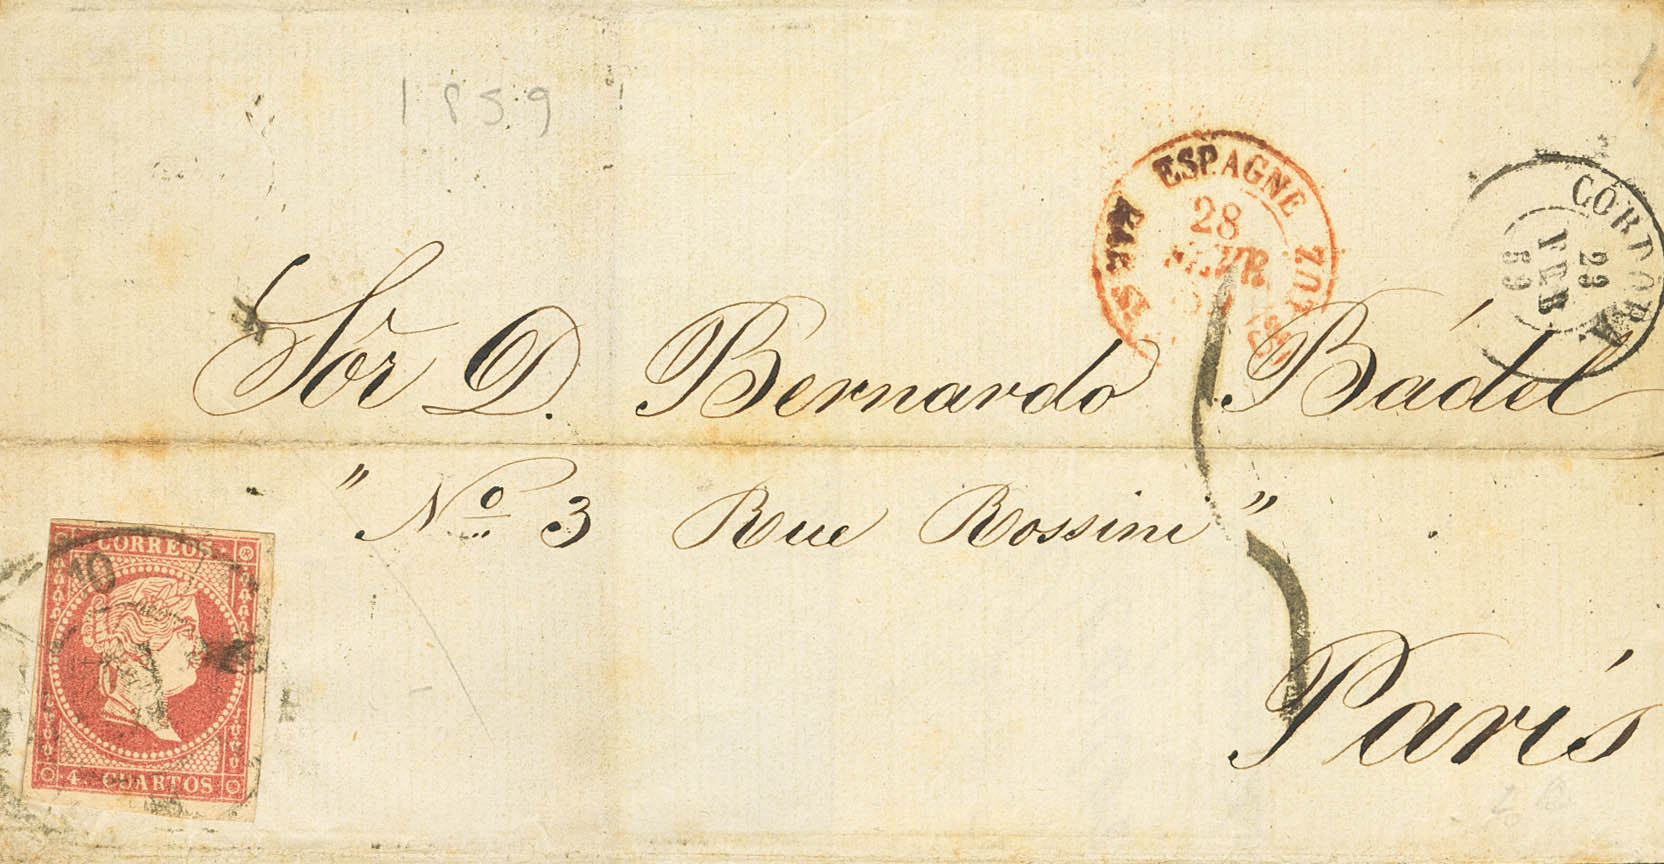 1859
ESPAGNE
28
ST JEAN DE LUZ
CORDOBA
23
FEB
59
Sór D. Bernardo Bádel
"Nº 3 Rue Rossini"
París
CORREOS
10
4 CUARTOS